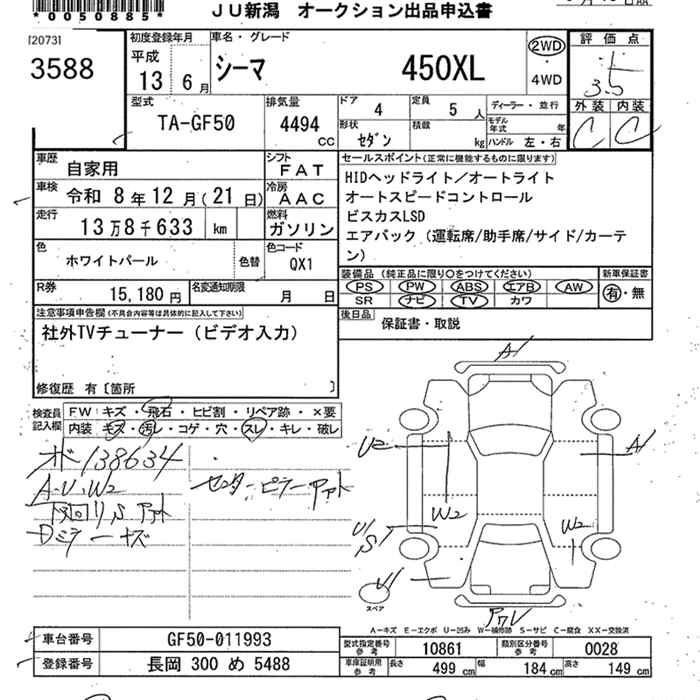 *0050885*
JU新潟 オークション出品申込書
[2073]
3588
初度登録年月
平成
13 6月
車名・グレード
シーマ 450XL
2WD
4WD
評価点
3.5
外装 内装
C C
型式
TA-GF50
排気量
4494 cc
ドア 4
定員 5 人
ディーラー・並行
形状 セダン
積載 kg
モデル年式 年
ハンドル 左・右
車歴 自家用
シフト FAT
車検 令和 8年 12月(21日)
冷房 AAC
走行 13万8千633 km
燃料 ガソリン
色 ホワイトパール
色替
色コード QX1
R券 15,180円
名変通知期限 月 日
セールスポイント(正常に機能するものに限ります)
HIDヘッドライト/オートライト
オートスピードコントロール
ビスカスLSD
エアバック(運転席/助手席/サイド/カーテ
ン)
装備品(純正品に限り○をつけてください)
新車保証書
PS PW ABS エアB AW
SR ナビ TV カワ
有・無
後日品 保証書・取説
注意事項申告欄(不具合内容等は具体的に記入して下さい)
社外TVチューナー(ビデオ入力)
修復歴 有〔箇所 〕
検査員記入欄
FW:キズ・飛石・ヒビ割・リペア跡・×要
内装:キズ・汚レ・コゲ・穴・スレ・キレ・破レ
138634
A・U・W2
A1
U2
A1
W2
W2
U1
S1
U1
スペア
A-キズ E-エクボ U-凹み W-補修跡 S-サビ C-腐食 XX-交換済
車台番号 GF50-011993
登録番号 長岡 300 め 5488
型式指定番号 参考 10861
類別区分番号 参考 0028
車庫証明用 参考 長さ 499 cm 幅 184 cm 高さ 149 cm